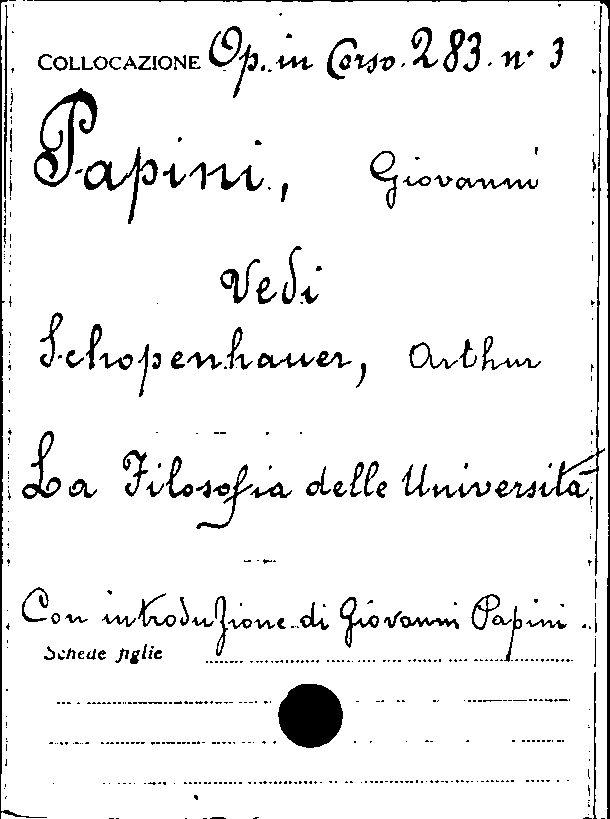 COLLOCAZIONE Op. in Corso. 283. n. 3
Papini, Giovanni
Vedi
Schopenhauer, Arthur
La Filosofia delle Università
Con introduzione di Giovanni Papini.
Schede figlie